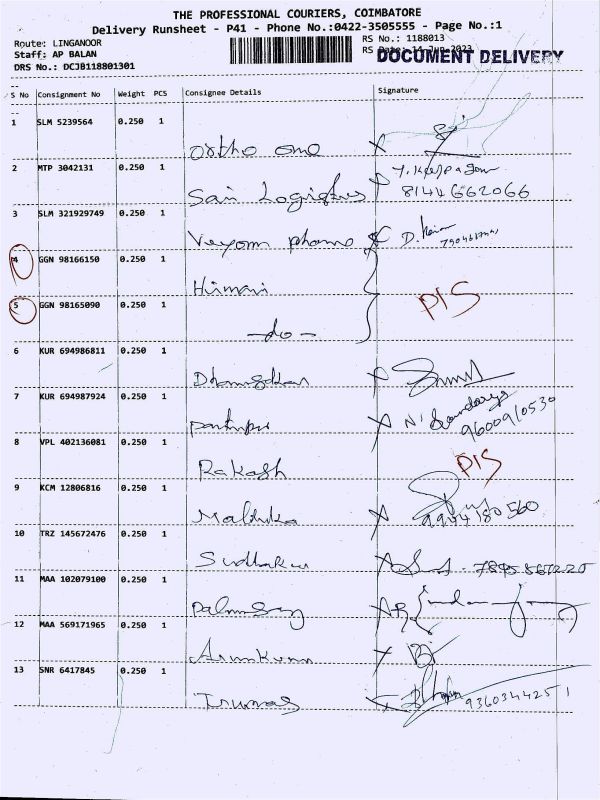 THE PROFESSIONAL COURIERS, COIMBATORE
Delivery Runsheet - P41 - Phone No.:0422-3505555 - Page No.:1
Route: LINGANOOR
RS No.: 1188013
Staff: AP BALAN
RS Date: 14-Jun-2023
DOCUMENT DELIVERY
DRS No.: DCJB118801301
S No Consignment No Weight PCS Consignee Details Signature
1 SLM 5239564 0.250 1
ortho one
2 MTP 3042131 0.250 1
Sai Logistics 8144662066
3 SLM 321929749 0.250 1
pharma D.
4 GGN 98166150 0.250 1
Himani
PIS
5 GGN 98165090 0.250 1
-do-
6 KUR 694986811 0.250 1
7 KUR 694987924 0.250 1
9600910530
8 VPL 402136081 0.250 1
Rakash PIS
9 KCM 12806816 0.250 1
Malthika 9944180560
10 TRZ 145672476 0.250 1
Sudhakar
11 MAA 102079100 0.250 1
12 MAA 569171965 0.250 1
Arunkumar
13 SNR 6417845 0.250 1
9360344251